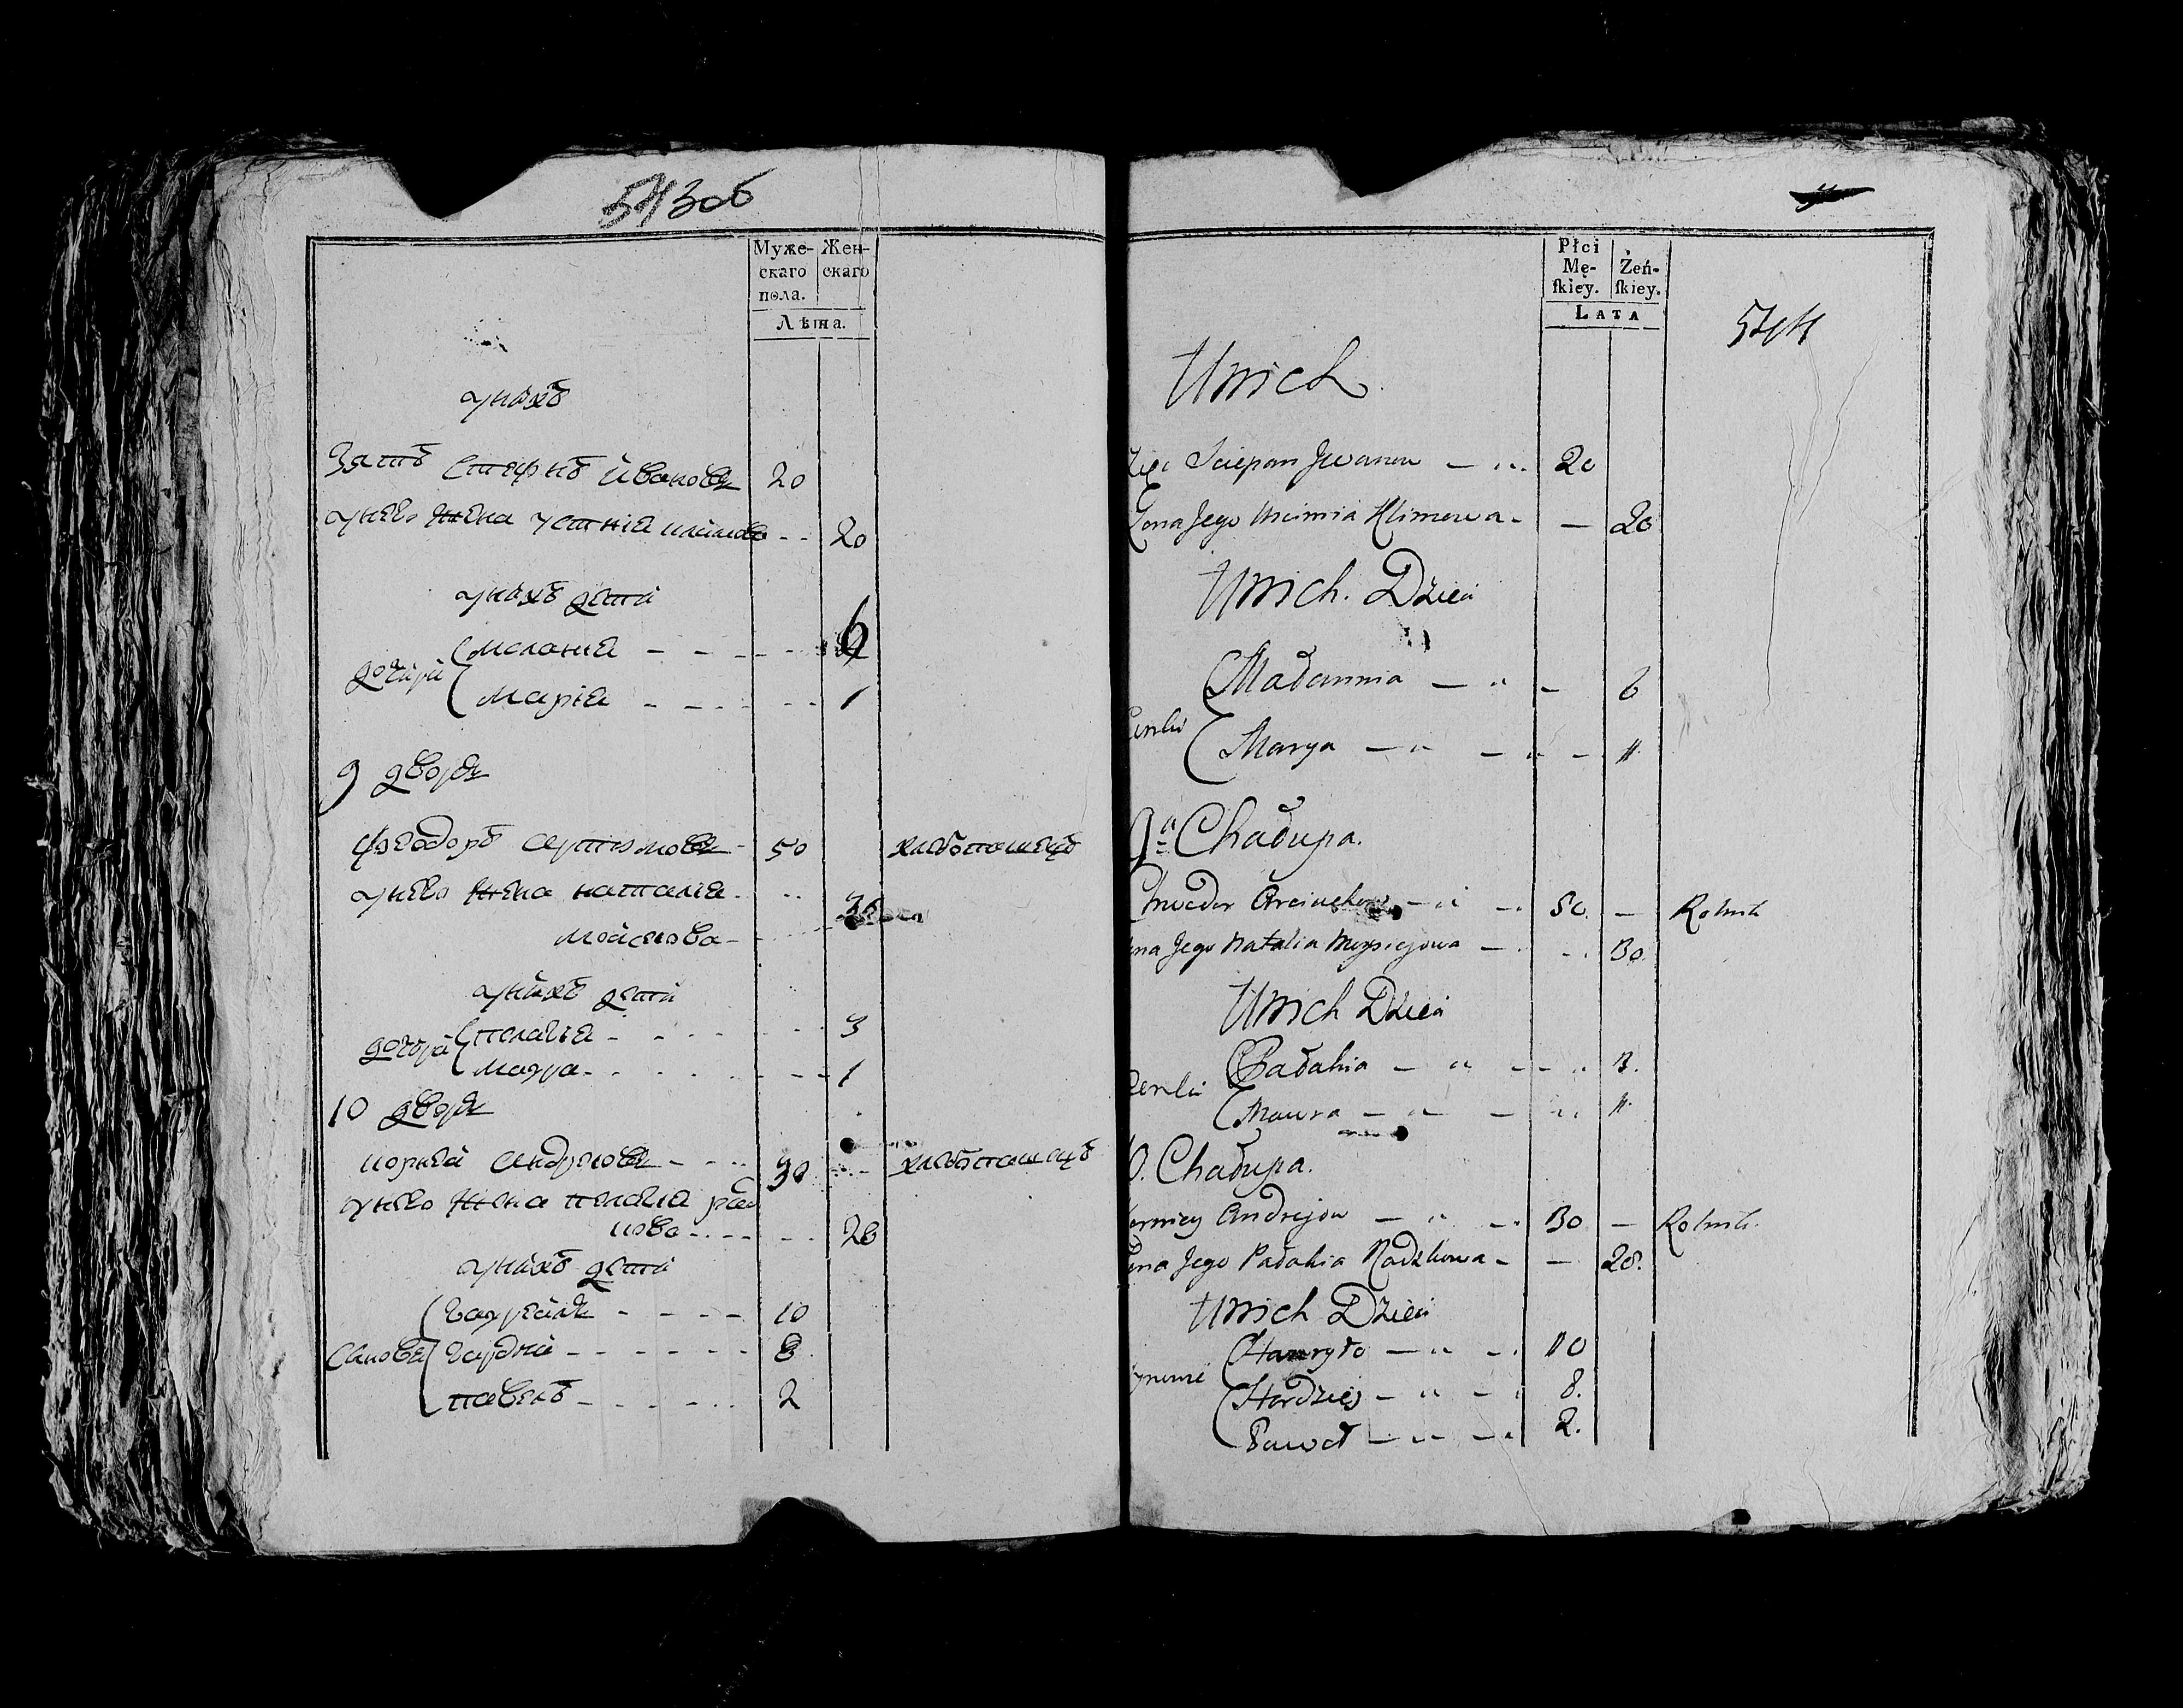 543 об
Муже-
скаго
пола.
Жен-
скаго
Лѣта.
у нихъ
Зять Стефанъ Ивановъ 20
у него жена Устинiя Климова - - 20
у нихъ дети
дочери Меланiя - - - - 6
Марiя - - - - - 1
9 дворъ
Феодоръ Артюмовъ - 50 хлебопашецъ
у него жена наталiя - - - 30
Моисеюва -
у нихъ дети
дочери пелагiя - - - - 3
Мавра - - - - - 1
10 дворъ
корнѣй андреювъ - - - 30 - - хлебопашецъ
у него жена пелагiя
кова - - - - 28
у нихъ дети
Сыновѣя гаврѣйлъ - - - - 10
гардѣй - - - - - 8
павелъ - - - - - 2
Płci
Mę-
ſkiey.
Żeń-
ſkiey.
LATA
544
Unich
Zięć Sciepan Jwanow - 20
Żona Jego Uscinnia Klimowa - - 20
Unich. Dzieci
Małannia - 6
Corki
Marya - 1.
9a Chałupa.
Chwedor - 50. - Rolnik
Żona Jego Natalia Moysiejowa - 30.
Unich Dzieci
Pałahia - 3.
Corki
Mawra - 1.
10. Chałupa.
Korniey Andrejow - 30 - Rolnik.
Żona Jego Pałahia Radzkowa - - 28.
Unich Dzieci
Hawryło - 10
Synowie
Hordziej - 8.
Paweł - 2.